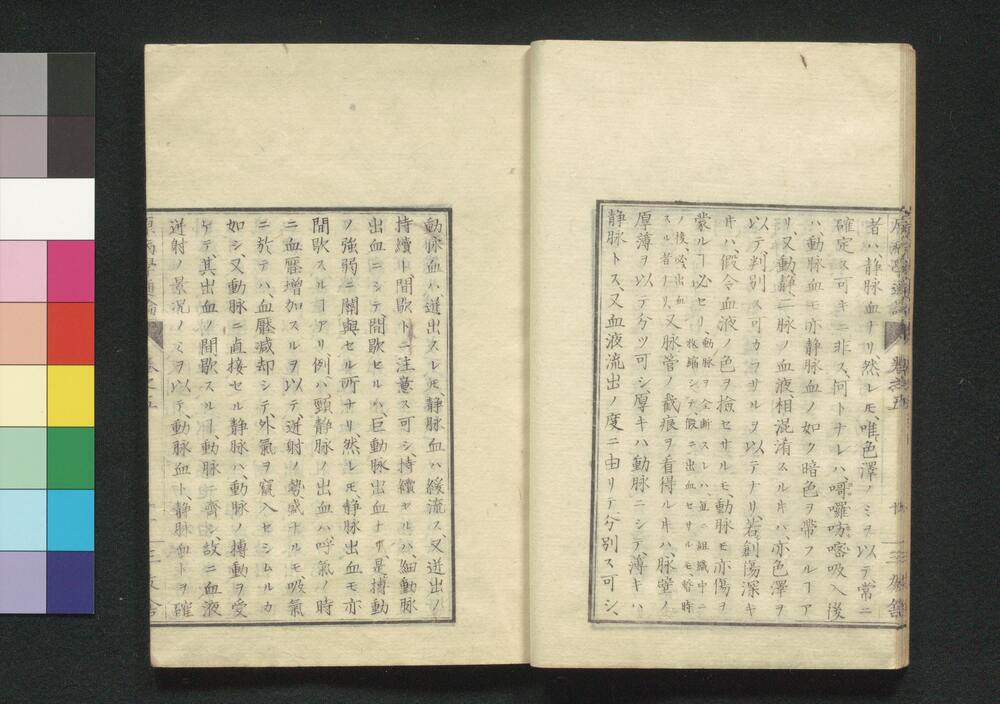 者ハ、静脉血ナリ、然レ𪜈、唯色澤ノミヲ以テ、常ニ
確定ス可キニ非ス、何トナレハ、嚼囉吩嗡吸入後
ハ、動脉血モ亦静脉血ノ如ク暗色ヲ帯フルヿア
リ、又動静二脉ノ血液、相混淆スル𪜈ハ、亦色澤ヲ
以テ判別ス可カラサルヲ以テナリ、若創傷深キ
𪜈ハ、假令血液ノ色ヲ撿セサルモ、動脉モ亦傷ヲ
蒙ルヿ必セリ、動脉ヲ全断スレハ、直ニ組織中ニ
収縮シテ、假ニ出血セサルモ、暫時
ノ後、必出血
スル者ナリ、又脉管ノ截痕ヲ看得ル𪜈ハ、脉壁ノ
厚薄ヲ以テ分ツ可シ、厚キハ動脉ニシテ、薄キハ
静脉トス、又血液流出ノ度ニ由リテ、分別ス可シ、
動脉血ハ迸出スレ𪜈、静脉血ハ緩流ス、又迸出ノ
持續ト、間歇トニ注意ス可シ、持續セルハ、細動脉
出血ニシテ、間歇セルハ、巨動脉出血ナリ、是搏動
ノ強弱ニ關與セル所ナリ、然レ𪜈、静脉出血モ亦
間歇スルヿアリ、例ハ、頸静脉ノ出血ハ、呼氣ノ時
ニ血壓増加スルヲ以テ、迸射ノ勢盛ナルモ、吸氣
ニ於テハ、血壓減却シテ、外氣ヲ竄入セシムルカ
如シ、又動脉ニ直接セル静脉ハ、動脉ノ搏動ヲ受
ケテ、其出血ノ間歇スルヿ、動脉ニ齊シ、故ニ血液
迸射ノ景況ノミヲ以テ、動脉血ト、静脉血トヲ確